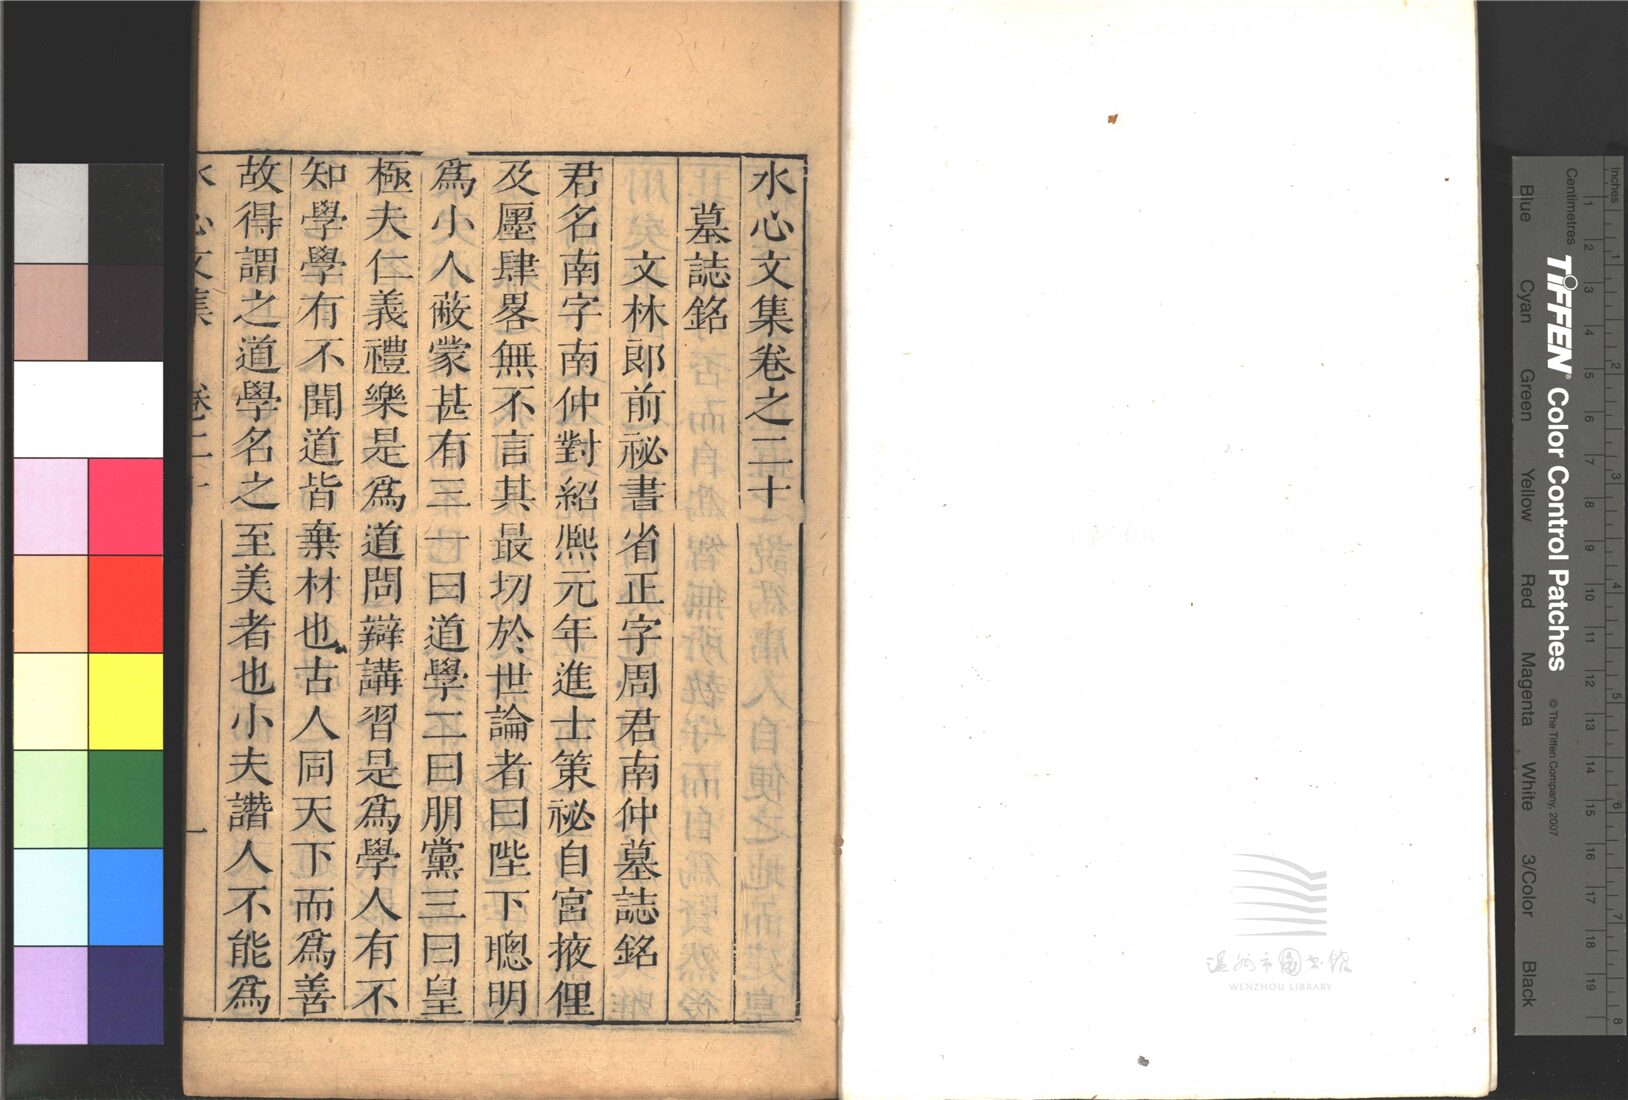 水心文集卷之二十
墓誌銘
文林郎前祕書省正字周君南仲墓誌銘
君名南字南仲對紹熈元年進士策祕自宮掖俚
及屬肆畧無不言其最切於世論者曰陛下聰明
爲小人蔽蒙甚有三一曰道學二曰朋黨三曰皇
極夫仁義禮樂是爲道問辯講習是爲學人有不
知學學有不聞道皆棄材也古人同天下而爲善
故得謂之道學名之至美者也小夫譖人不能爲
水心文集 卷二十 一
溫州市圖書館
WENZHOU LIBRARY
Inches
Centimetres
TIFFEN® Color Control Patches
© The Tiffen Company, 2007
Blue Cyan Green Yellow Red Magenta White 3/Color Black
1 2 3 4 5 6 7 8 9 10 11 12 13 14 15 16 17 18 19
1 2 3 4 5 6 7 8